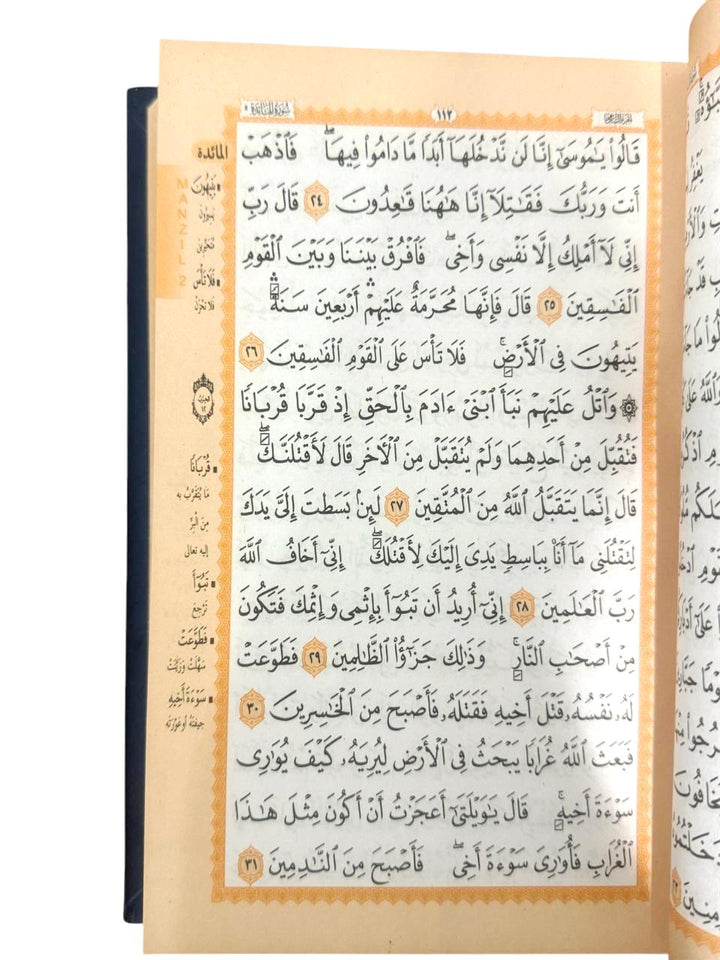 سُورَةُ المَائِدَة ٥
١١٢
الجزء السادس
قَالُوا۟ يَـٰمُوسَىٰٓ إِنَّا لَن نَّدْخُلَهَآ أَبَدًا مَّا دَامُوا۟ فِيهَا ۖ فَٱذْهَبْ
أَنتَ وَرَبُّكَ فَقَـٰتِلَآ إِنَّا هَـٰهُنَا قَـٰعِدُونَ ٢٤ قَالَ رَبِّ
إِنِّى لَآ أَمْلِكُ إِلَّا نَفْسِى وَأَخِى ۖ فَٱفْرُقْ بَيْنَنَا وَبَيْنَ ٱلْقَوْمِ
ٱلْفَـٰسِقِينَ ٢٥ قَالَ فَإِنَّهَا مُحَرَّمَةٌ عَلَيْهِمْ ۛ أَرْبَعِينَ سَنَةً ۛ
يَتِيهُونَ فِى ٱلْأَرْضِ ۚ فَلَا تَأْسَ عَلَى ٱلْقَوْمِ ٱلْفَـٰسِقِينَ ٢٦
۞ وَٱتْلُ عَلَيْهِمْ نَبَأَ ٱبْنَىْ ءَادَمَ بِٱلْحَقِّ إِذْ قَرَّبَا قُرْبَانًا
فَتُقُبِّلَ مِنْ أَحَدِهِمَا وَلَمْ يُتَقَبَّلْ مِنَ ٱلْـَٔاخَرِ قَالَ لَأَقْتُلَنَّكَ ۖ
قَالَ إِنَّمَا يَتَقَبَّلُ ٱللَّهُ مِنَ ٱلْمُتَّقِينَ ٢٧ لَئِنۢ بَسَطتَ إِلَىَّ يَدَكَ
لِتَقْتُلَنِى مَآ أَنَا۠ بِبَاسِطٍ يَدِىَ إِلَيْكَ لِأَقْتُلَكَ ۖ إِنِّىٓ أَخَافُ ٱللَّهَ
رَبَّ ٱلْعَـٰلَمِينَ ٢٨ إِنِّىٓ أُرِيدُ أَن تَبُوٓأَ بِإِثْمِى وَإِثْمِكَ فَتَكُونَ
مِنْ أَصْحَـٰبِ ٱلنَّارِ ۚ وَذَٰلِكَ جَزَٰٓؤُا۟ ٱلظَّـٰلِمِينَ ٢٩ فَطَوَّعَتْ
لَهُۥ نَفْسُهُۥ قَتْلَ أَخِيهِ فَقَتَلَهُۥ فَأَصْبَحَ مِنَ ٱلْخَـٰسِرِينَ ٣٠
فَبَعَثَ ٱللَّهُ غُرَابًا يَبْحَثُ فِى ٱلْأَرْضِ لِيُرِيَهُۥ كَيْفَ يُوَٰرِى
سَوْءَةَ أَخِيهِ ۚ قَالَ يَـٰوَيْلَتَىٰٓ أَعَجَزْتُ أَنْ أَكُونَ مِثْلَ هَـٰذَا
ٱلْغُرَابِ فَأُوَٰرِىَ سَوْءَةَ أَخِى ۖ فَأَصْبَحَ مِنَ ٱلنَّـٰدِمِينَ ٣١
المائدة
MANZIL 2
يَتِيهُونَ
يَسِيرُونَ
مُتَحَيِّرِينَ
فَلَا تَأْسَ
فَلا تَحْزَنْ
الحزب
١٢
قُرْبَانًا
مَا يُتَقَرَّبُ به
مِنَ البِرِّ
إليه تعالى
تَبُوٓأَ
تَرْجِعَ
فَطَوَّعَتْ
سَهَّلَتْ وَزَيَّنَتْ
سَوْءَةَ أَخِيهِ
جِيفَتَهُ أو عَوْرَتَه